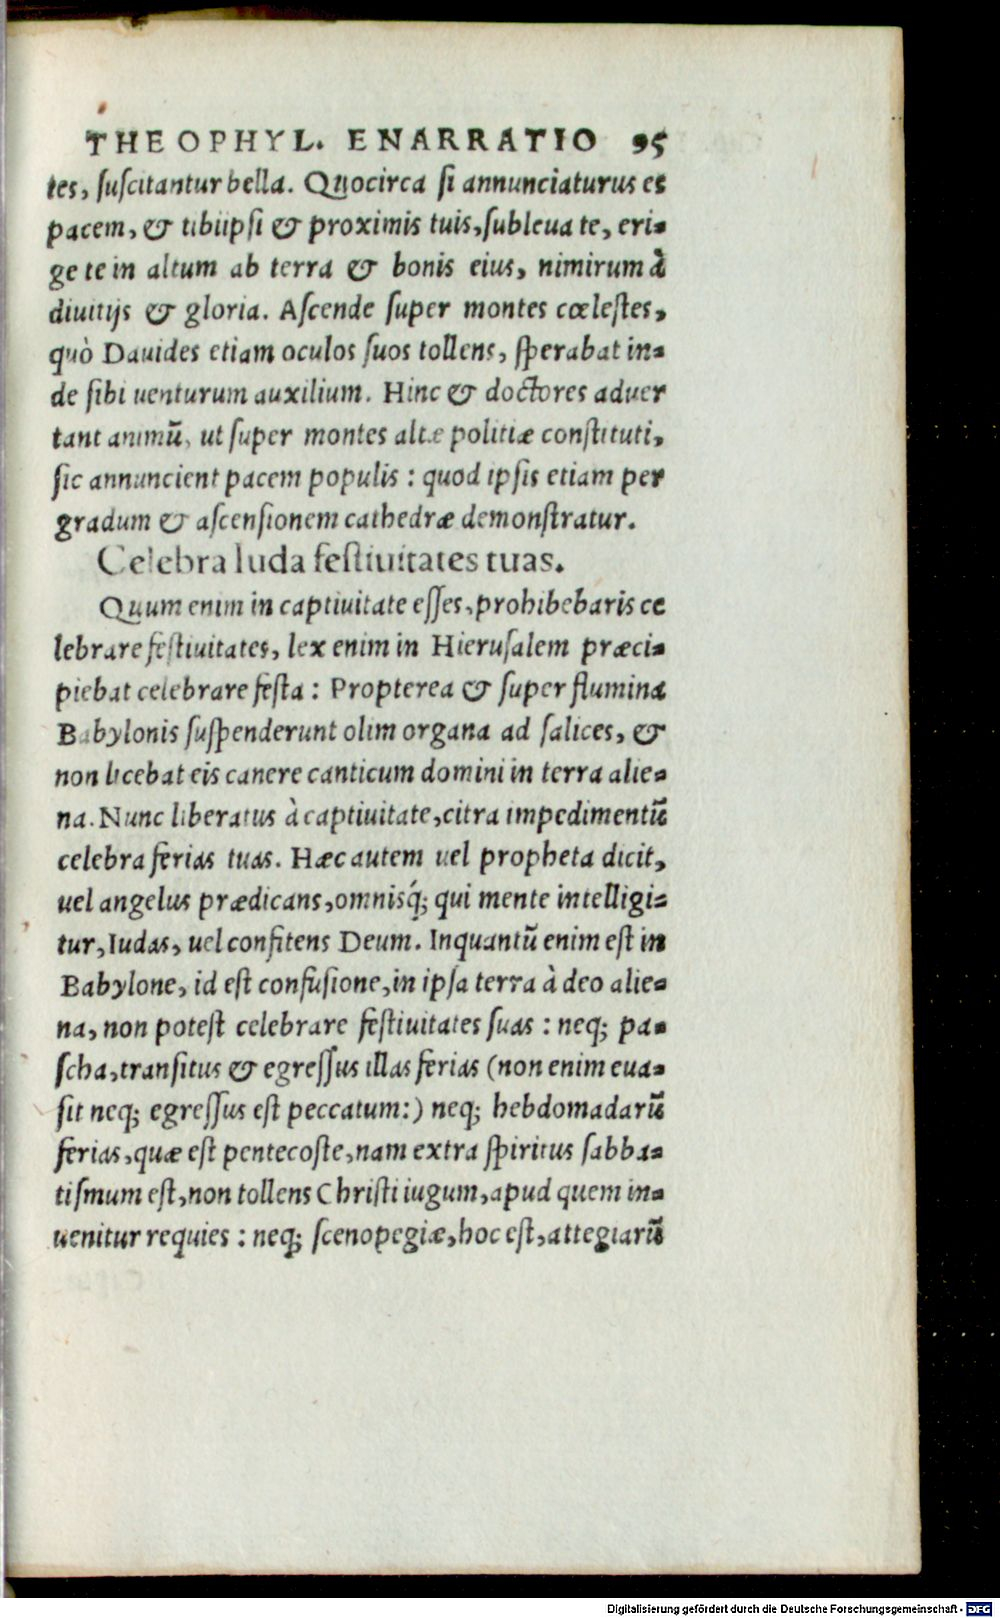 THEOPHYL. ENARRATIO 95
tes, ſuſcitantur bella. Quocirca ſi annunciaturus es
pacem, & tibiipſi & proximis tuis, ſubleua te, eri-
ge te in altum ab terra & bonis eius, nimirum à
diuitijs & gloria. Aſcende ſuper montes cœleſtes,
quò Dauides etiam oculos ſuos tollens, ſperabat in-
de ſibi uenturum auxilium. Hinc & doctores aduer
tant animũ, ut ſuper montes altæ politiæ conſtituti,
ſic annuncient pacem populis : quod ipſis etiam per
gradum & aſcenſionem cathedræ demonſtratur.
Celebra Iuda feſtiuitates tuas.
Quum enim in captiuitate eſſes, prohibebaris ce
lebrare feſtiuitates, lex enim in Hieruſalem præci-
piebat celebrare feſta : Propterea & ſuper flumina
Babylonis ſuſpenderunt olim organa ad ſalices, &
non licebat eis canere canticum domini in terra alie-
na. Nunc liberatus à captiuitate, citra impedimentũ
celebra ferias tuas. Hæc autem uel propheta dicit,
uel angelus prædicans, omnisq́; qui mente intelligi-
tur, Iudas, uel confitens Deum. Inquantũ enim eſt in
Babylone, id eſt confuſione, in ipſa terra à deo alie-
na, non poteſt celebrare feſtiuitates ſuas : neq; pa-
ſcha, tranſitus & egreſſus illas ferias (non enim eua-
ſit neq; egreſſus eſt peccatum:) neq; hebdomadarũ
ferias, quæ eſt pentecoſte, nam extra ſpiritus ſabba-
tiſmum eſt, non tollens Chriſti iugum, apud quem in-
uenitur requies : neq; ſcenopegiæ, hoc eſt, attegiarũ
Digitalisierung gefördert durch die Deutsche Forschungsgemeinschaft - DFG